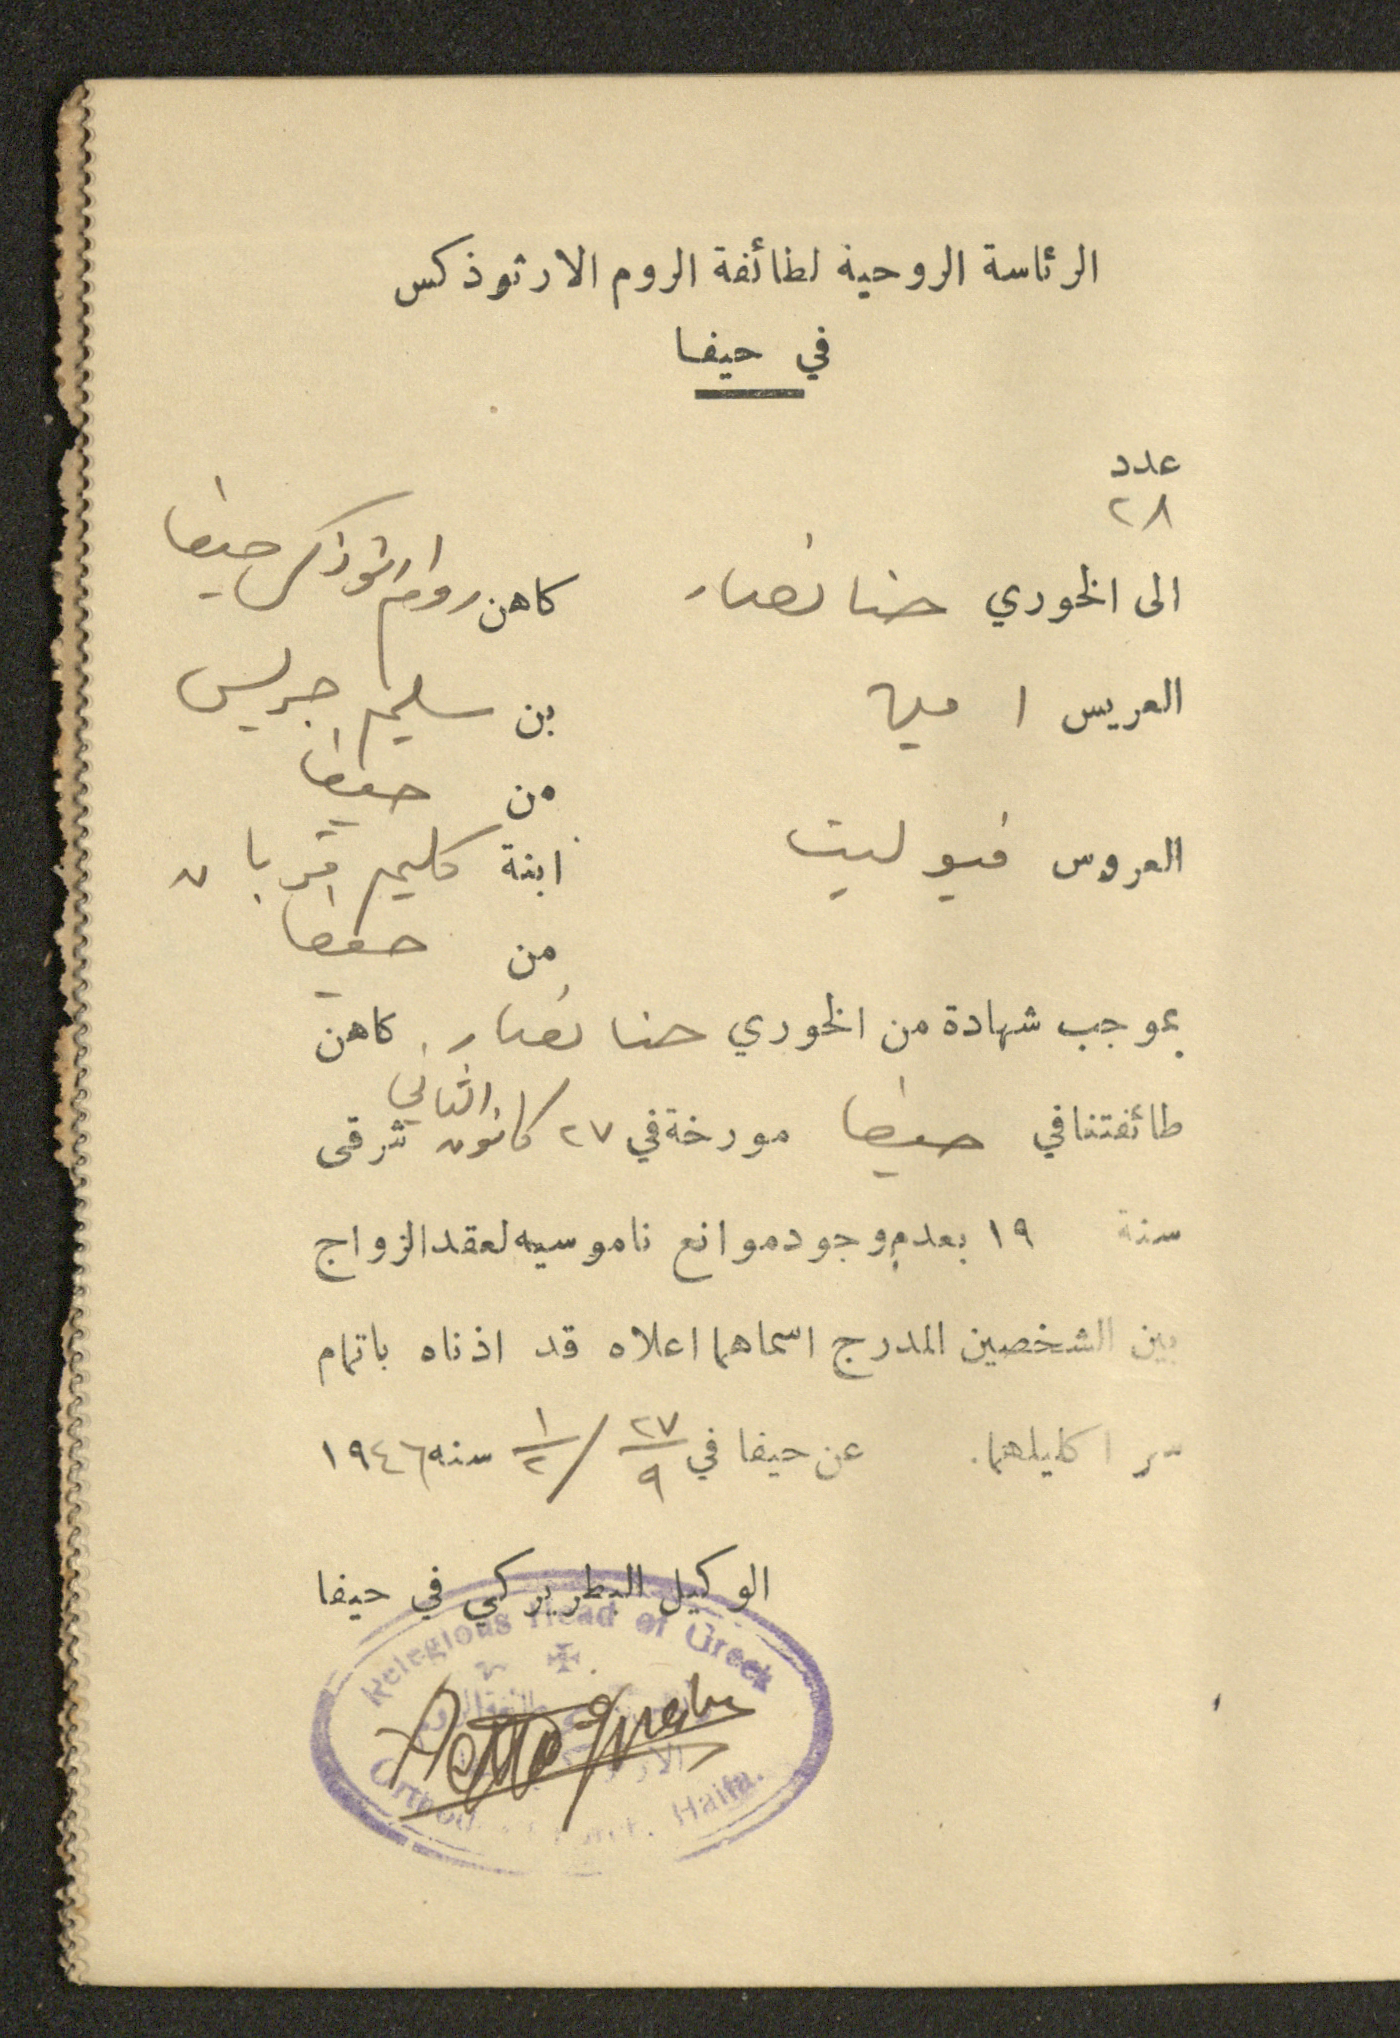 الرئاسة الروحية لطائفة الروم الارثوذكس
في حيفا
عدد
٢٨
الى الخوري حنا نصار كاهن روم ارثوذكس حيفا
العريس اميل بن سليم جريس
من حيفا
العروس فيوليت ابنة كليم قربان
من حيفا
بموجب شهادة من الخوري حنا نصار كاهن
طائفتنا في حيفا مورخة في ٢٧ كانون الثاني شرقي
سنة ١٩ بعدم وجود موانع ناموسيه لعقد الزواج
بين الشخصين المدرج اسماهما اعلاه قد اذناه باتمام
سر اكليلهما. عن حيفا في ٢٧/٩ / ١/٢ سنه ١٩٤٦
الوكيل البطريركي في حيفا
Relegious Head of Greek
Haifa.